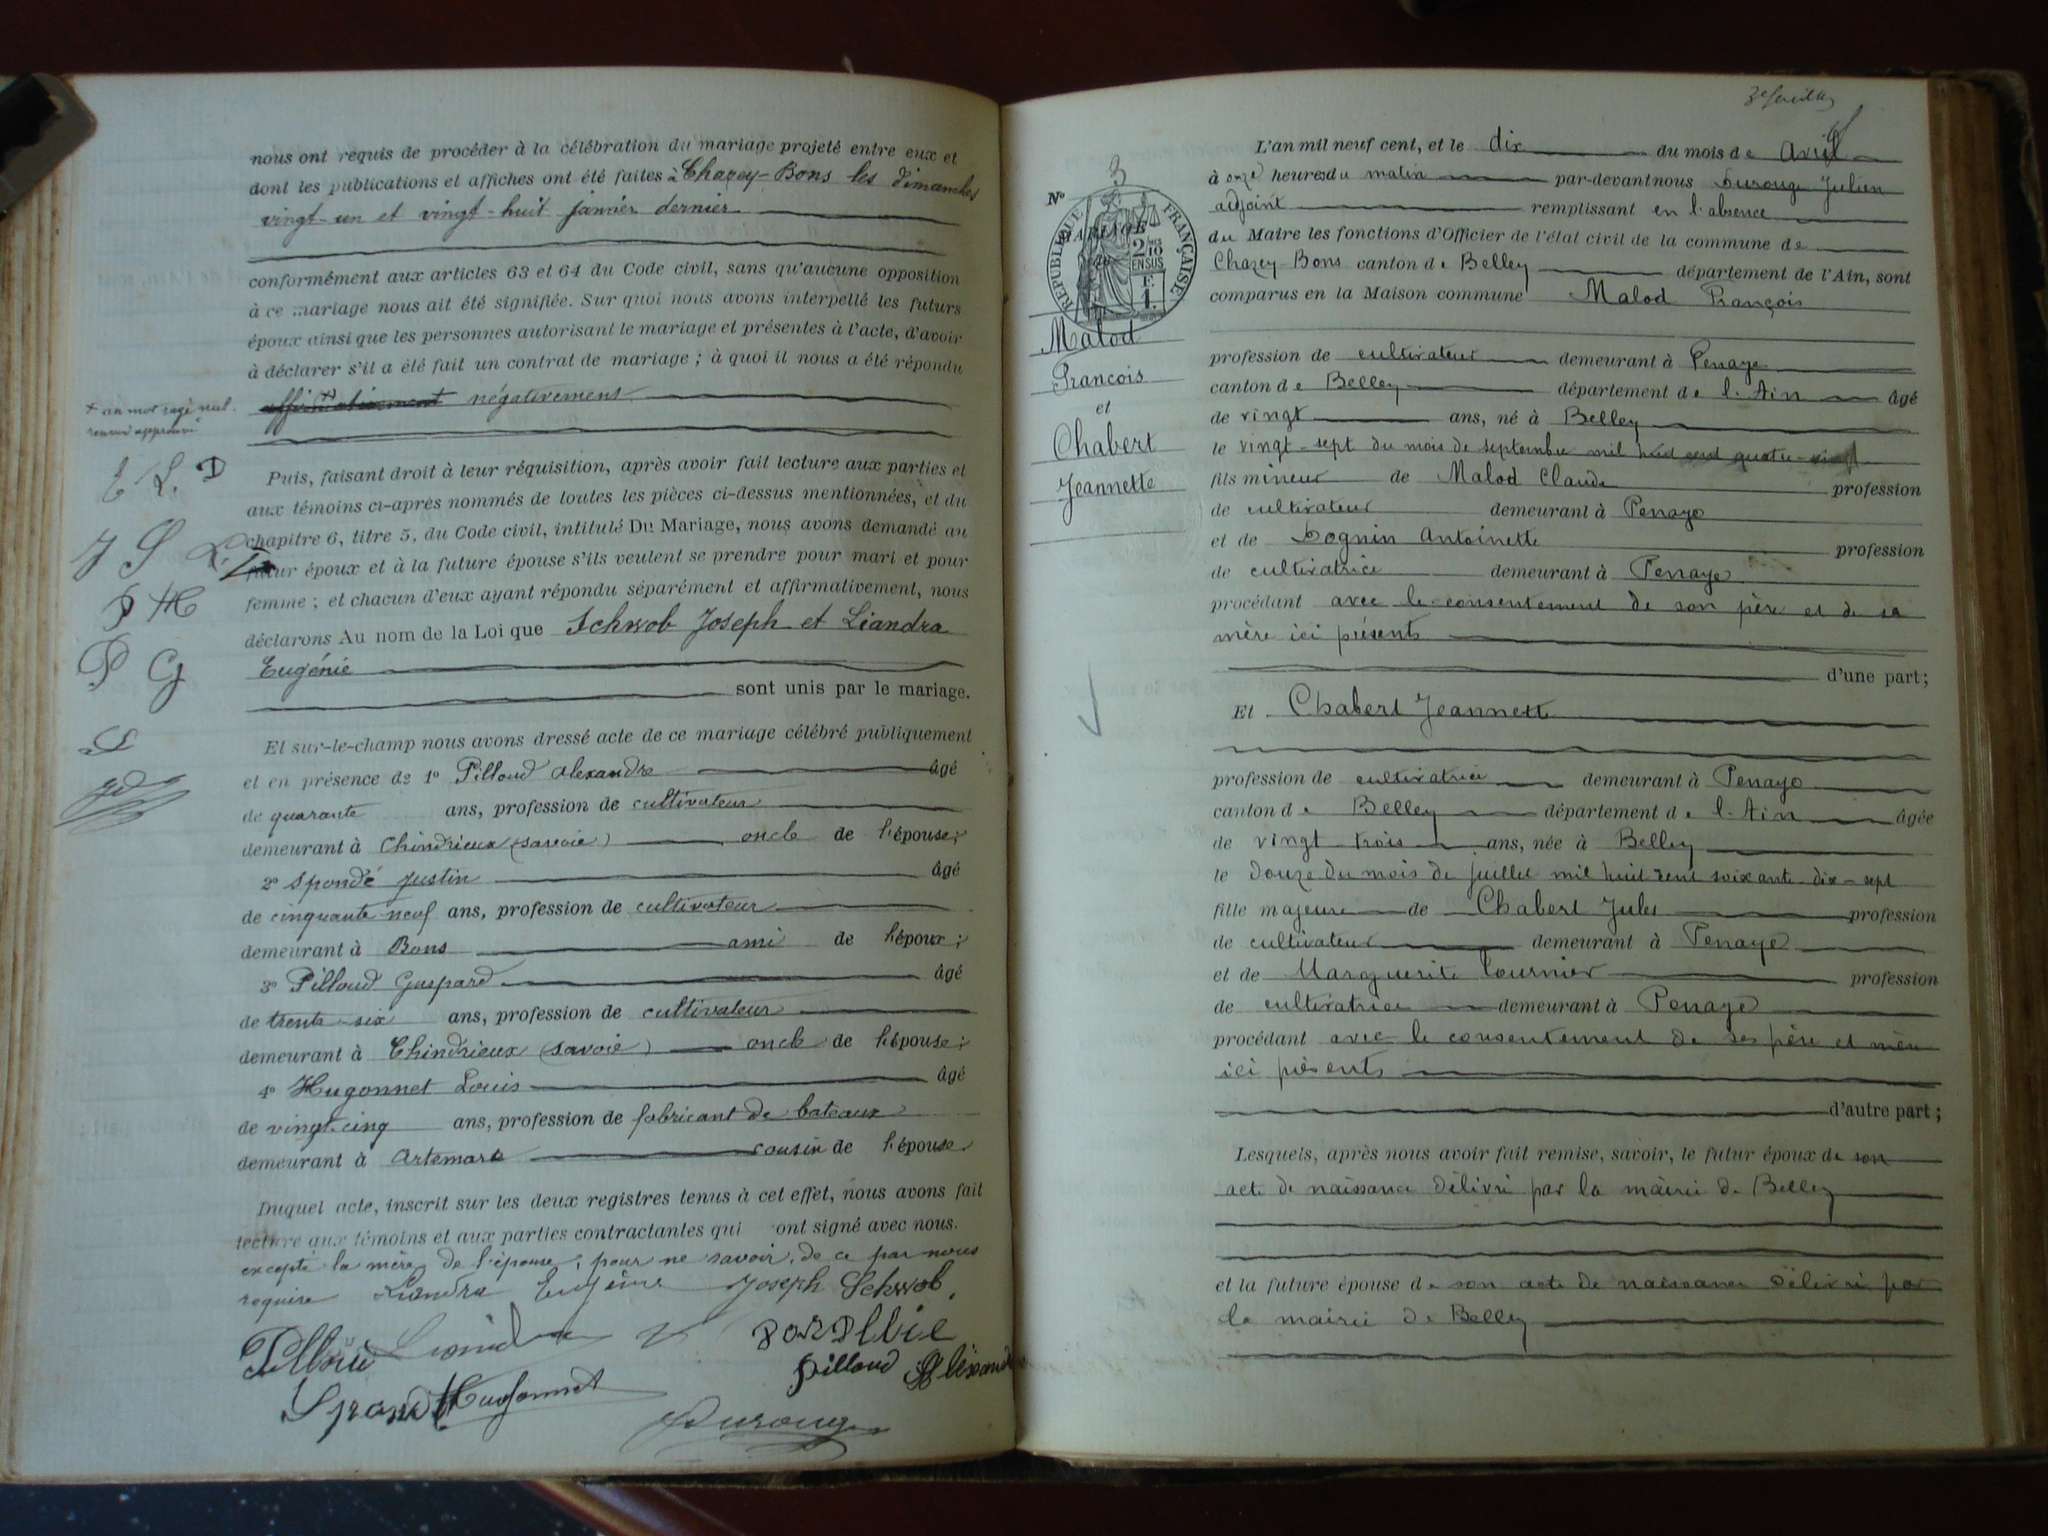 nous ont requis de procéder à la célébration du mariage projeté entre eux et
dont les publications et affiches ont été faites à Chazey-Bons les dimanches
vingt-un et vingt-huit janvier dernier
conformément aux articles 63 et 64 du Code civil, sans qu'aucune opposition
à ce mariage nous ait été signifiée. Sur quoi nous avons interpellé les futurs
époux ainsi que les personnes autorisant le mariage et présentes à l'acte, d'avoir
à déclarer s'il a été fait un contrat de mariage ; à quoi il nous a été répondu
affirmativement négativement
+ un mot rayé nul.
renvoi approuvé
E L. D
Puis, faisant droit à leur réquisition, après avoir fait lecture aux parties et
aux témoins ci-après nommés de toutes les pièces ci-dessus mentionnées, et du
chapitre 6, titre 5, du Code civil, intitulé Du Mariage, nous avons demandé au
futur époux et à la future épouse s'ils veulent se prendre pour mari et pour
femme ; et chacun d'eux ayant répondu séparément et affirmativement, nous
déclarons Au nom de la Loi que Schwob Joseph et Liandra
Eugénie
sont unis par le mariage.
J S L
P H
P G
S
JD
Et sur-le-champ nous avons dressé acte de ce mariage célébré publiquement
et en présence de 1° Pilloud Alexandre âgé
de quarante ans, profession de cultivateur
demeurant à Chindrieux (Savoie) oncle de l'épouse ;
2° Spondé Justin âgé
de cinquante-neuf ans, profession de cultivateur
demeurant à Bons ami de l'époux ;
3° Pilloud Gaspard âgé
de trente-six ans, profession de cultivateur
demeurant à Chindrieux (Savoie) oncle de l'épouse ;
4° Hugonnet Louis âgé
de vingt-cinq ans, profession de fabricant de bateaux
demeurant à Artemare cousin de l'épouse
Duquel acte, inscrit sur les deux registres tenus à cet effet, nous avons fait
lecture aux témoins et aux parties contractantes qui ont signé avec nous.
excepté la mère de l'épouse, pour ne savoir, de ce par nous
requise Liandra Eugénie Joseph Schwob
Pilloud
Pilloud Alexandre
Hugonnet
Durouge
3e feuillet
N° 3
MARIAGE
RÉPUBLIQUE FRANÇAISE
2/10 EN SUS
F. 1.
Malod
François
et
Chabert
Jeannette
L'an mil neuf cent, et le dix du mois de Avril
à onze heures du matin par-devant nous Durouge Julien
adjoint remplissant en l'absence
du Maire les fonctions d'Officier de l'état civil de la commune de
Chazey-Bons canton de Belley département de l'Ain, sont
comparus en la Maison commune Malod François
profession de cultivateur demeurant à Penaye
canton de Belley département de l'Ain âgé
de vingt ans, né à Belley
le vingt-sept du mois de septembre mil huit cent quatre-vingt
fils mineur de Malod Claude profession
de cultivateur demeurant à Penaye
et de Dognin Antoinette profession
de cultivatrice demeurant à Penaye
procédant avec le consentement de son père et de sa
mère ici présents
d'une part ;
Et Chabert Jeannette
profession de cultivatrice demeurant à Penaye
canton de Belley département de l'Ain âgée
de vingt trois ans, née à Belley
le douze du mois de juillet mil huit cent soixante-dix-sept
fille majeure de Chabert Jules profession
de cultivateur demeurant à Penaye
et de Marguerite Tournier profession
de cultivatrice demeurant à Penaye
procédant avec le consentement de ses père et mère
ici présents
d'autre part ;
Lesquels, après nous avoir fait remise, savoir, le futur époux de son
acte de naissance délivré par la mairie de Belley
et la future épouse de son acte de naissance délivré par
la mairie de Belley